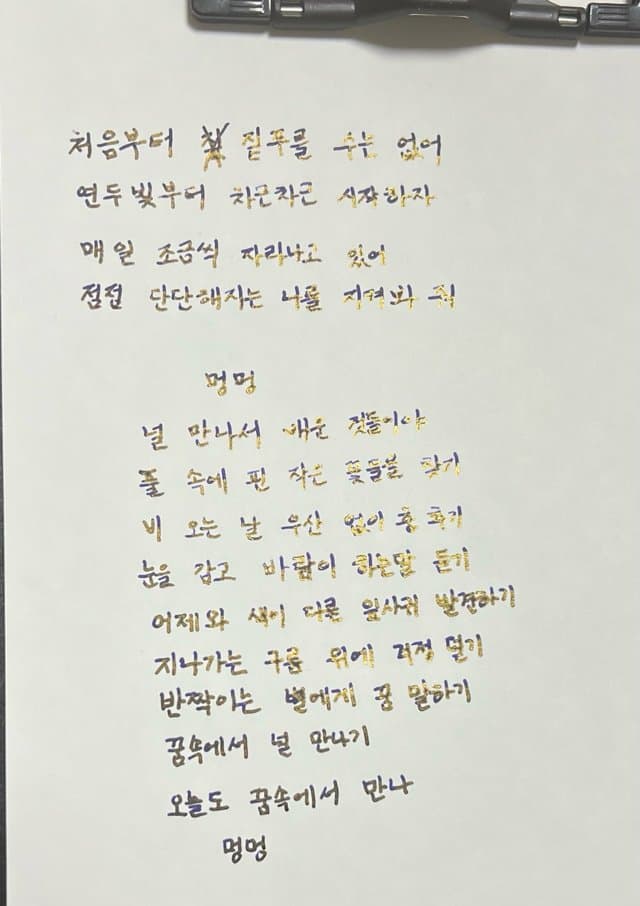 처음부터 짙푸를 수는 없어
연두빛부터 차근차근 시작하자
매일 조금씩 자라나고 있어
점점 단단해지는 나를 지켜봐 줘
멍멍
널 만나서 배운 것들이야
풀 속에 핀 작은 꽃들을 찾기
비 오는 날 우산 없이 춤 추기
눈을 감고 바람이 하는말 듣기
어제와 색이 다른 잎사귀 발견하기
지나가는 구름 위에 걱정 덜기
반짝이는 별에게 꿈 말하기
꿈속에서 널 만나기
오늘도 꿈속에서 만나
멍멍